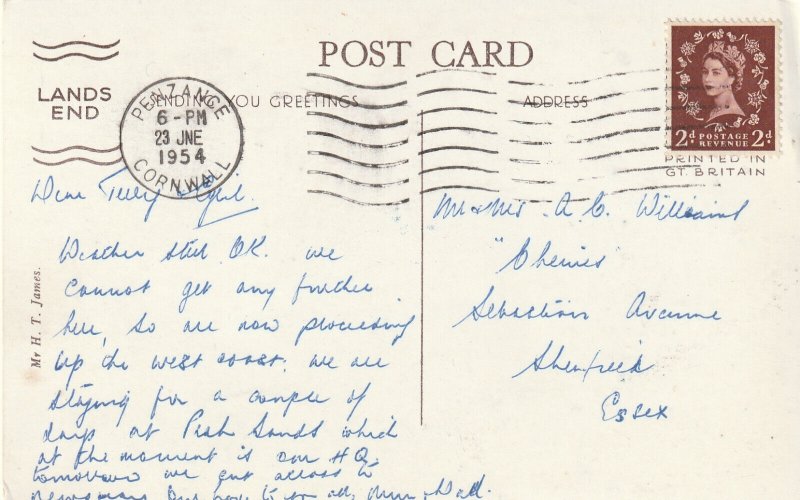 POST CARD
LANDS
END
PENZANCE
6-PM
23 JNE
1954
CORNWALL
SENDING YOU GREETINGS
ADDRESS
2d POSTAGE REVENUE 2d
PRINTED IN
GT. BRITAIN
Mr H. T. James.
Dear
Weather still OK. we
cannot get any further
here, so are now proceeding
up the west coast. we are
staying for a couple of
days at Sands which
at the moment is our HQ.
tomorrow we cut across to
to you all, Mum & Dad.
Mr & Mrs A. C. Williams
Sebastian Avenue
Shenfield
Essex